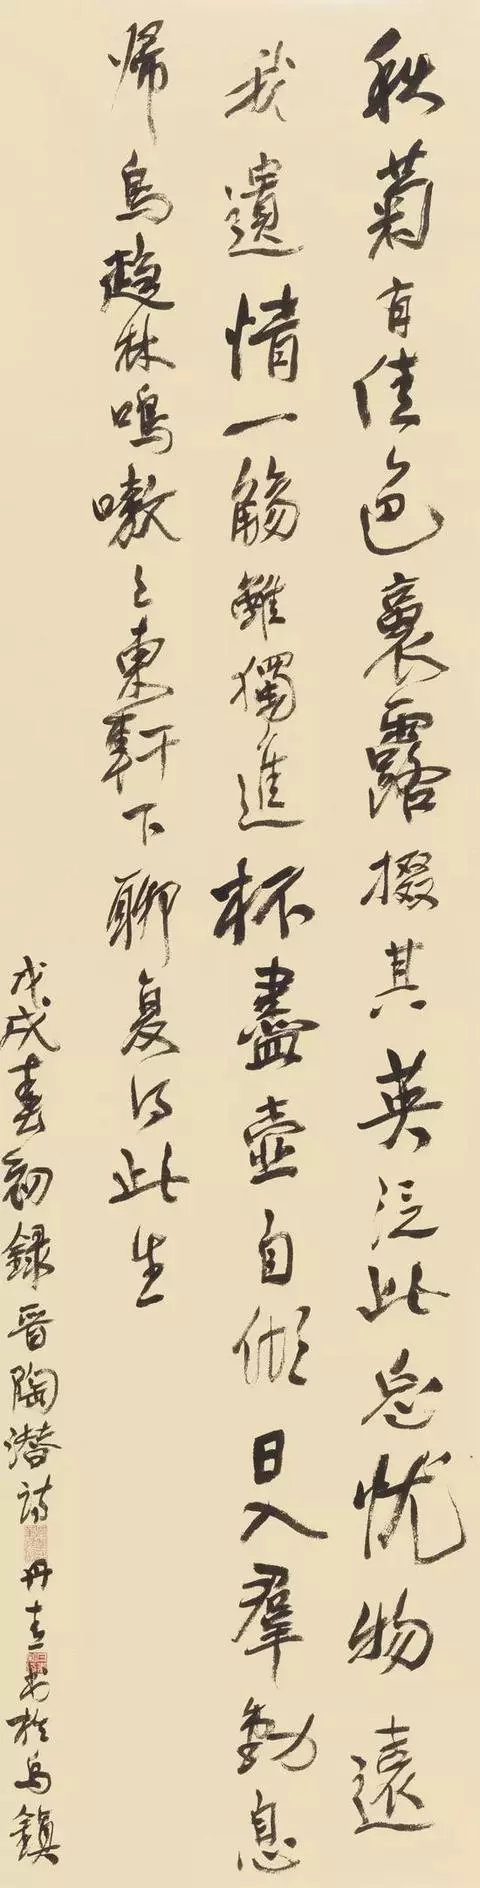 秋菊有佳色裛露掇其英泛此忘忧物遠
我遺情一觴雖獨進杯盡壺自傾日入羣動息
帰鳥趨林鳴嗷々東軒下聊复得此生
戊戌春初録晋陶潜詩丹青书於烏鎮